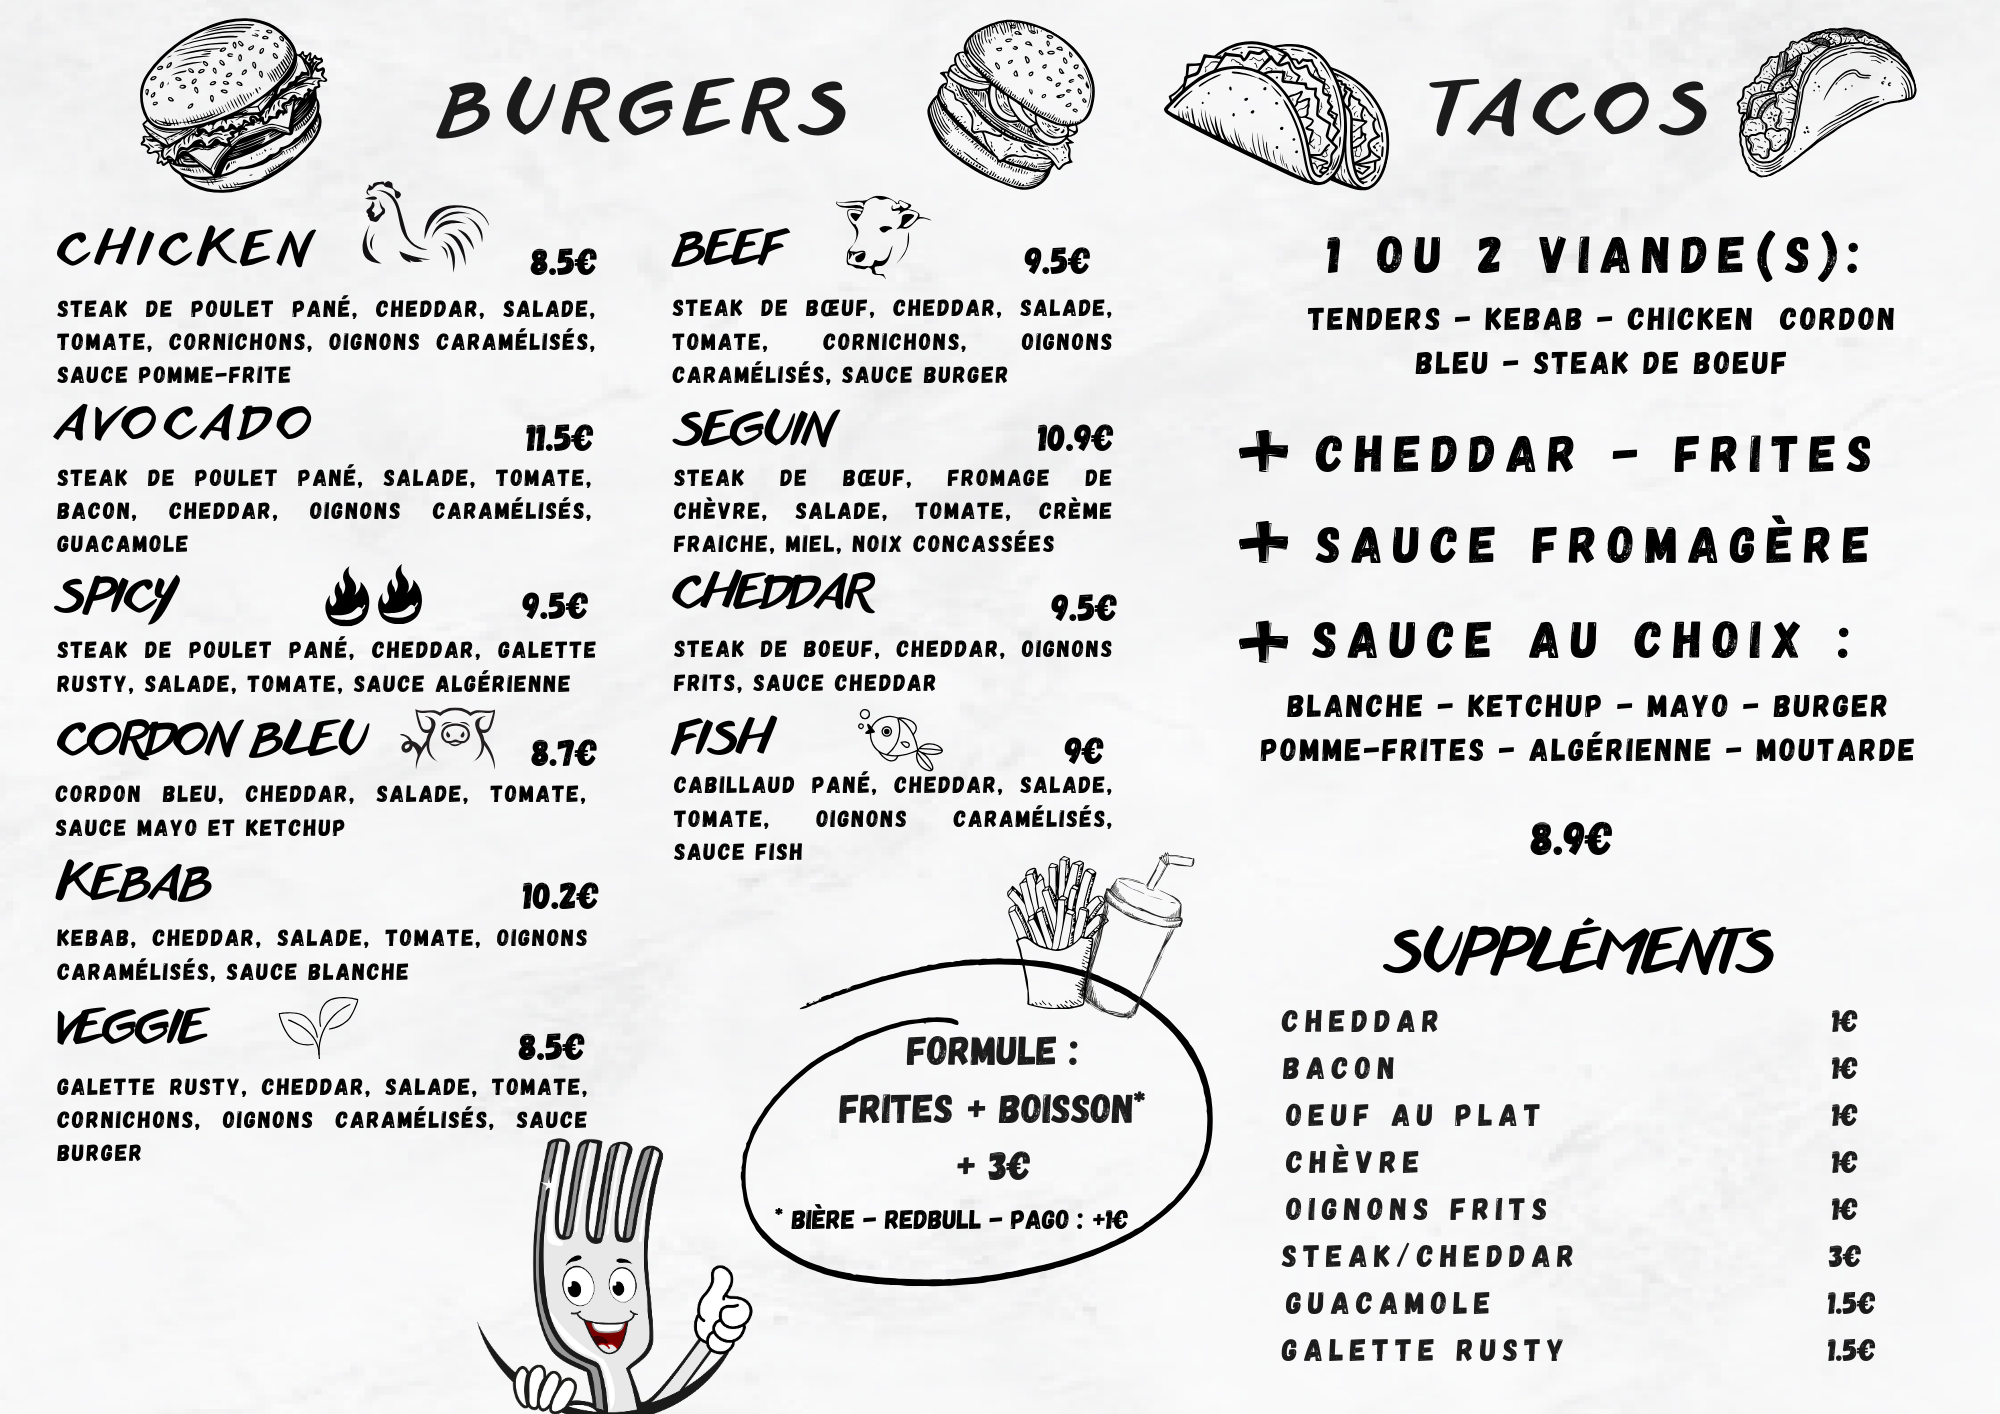 BURGERS
CHICKEN 8.5€
STEAK DE POULET PANÉ, CHEDDAR, SALADE,
TOMATE, CORNICHONS, OIGNONS CARAMÉLISÉS,
SAUCE POMME-FRITE
AVOCADO 11.5€
STEAK DE POULET PANÉ, SALADE, TOMATE,
BACON, CHEDDAR, OIGNONS CARAMÉLISÉS,
GUACAMOLE
SPICY 9.5€
STEAK DE POULET PANÉ, CHEDDAR, GALETTE
RUSTY, SALADE, TOMATE, SAUCE ALGÉRIENNE
CORDON BLEU 8.7€
CORDON BLEU, CHEDDAR, SALADE, TOMATE,
SAUCE MAYO ET KETCHUP
KEBAB 10.2€
KEBAB, CHEDDAR, SALADE, TOMATE, OIGNONS
CARAMÉLISÉS, SAUCE BLANCHE
VEGGIE 8.5€
GALETTE RUSTY, CHEDDAR, SALADE, TOMATE,
CORNICHONS, OIGNONS CARAMÉLISÉS, SAUCE
BURGER
BEEF 9.5€
STEAK DE BŒUF, CHEDDAR, SALADE,
TOMATE, CORNICHONS, OIGNONS
CARAMÉLISÉS, SAUCE BURGER
SEGUIN 10.9€
STEAK DE BŒUF, FROMAGE DE
CHÈVRE, SALADE, TOMATE, CRÈME
FRAICHE, MIEL, NOIX CONCASSÉES
CHEDDAR 9.5€
STEAK DE BOEUF, CHEDDAR, OIGNONS
FRITS, SAUCE CHEDDAR
FISH 9€
CABILLAUD PANÉ, CHEDDAR, SALADE,
TOMATE, OIGNONS CARAMÉLISÉS,
SAUCE FISH
FORMULE :
FRITES + BOISSON*
+ 3€
* BIÈRE - REDBULL - PAGO : +1€
TACOS
1 OU 2 VIANDE(S):
TENDERS - KEBAB - CHICKEN CORDON
BLEU - STEAK DE BOEUF
+ CHEDDAR - FRITES
+ SAUCE FROMAGÈRE
+ SAUCE AU CHOIX :
BLANCHE - KETCHUP - MAYO - BURGER
POMME-FRITES - ALGÉRIENNE - MOUTARDE
8.9€
SUPPLÉMENTS
CHEDDAR 1€
BACON 1€
OEUF AU PLAT 1€
CHÈVRE 1€
OIGNONS FRITS 1€
STEAK/CHEDDAR 3€
GUACAMOLE 1.5€
GALETTE RUSTY 1.5€